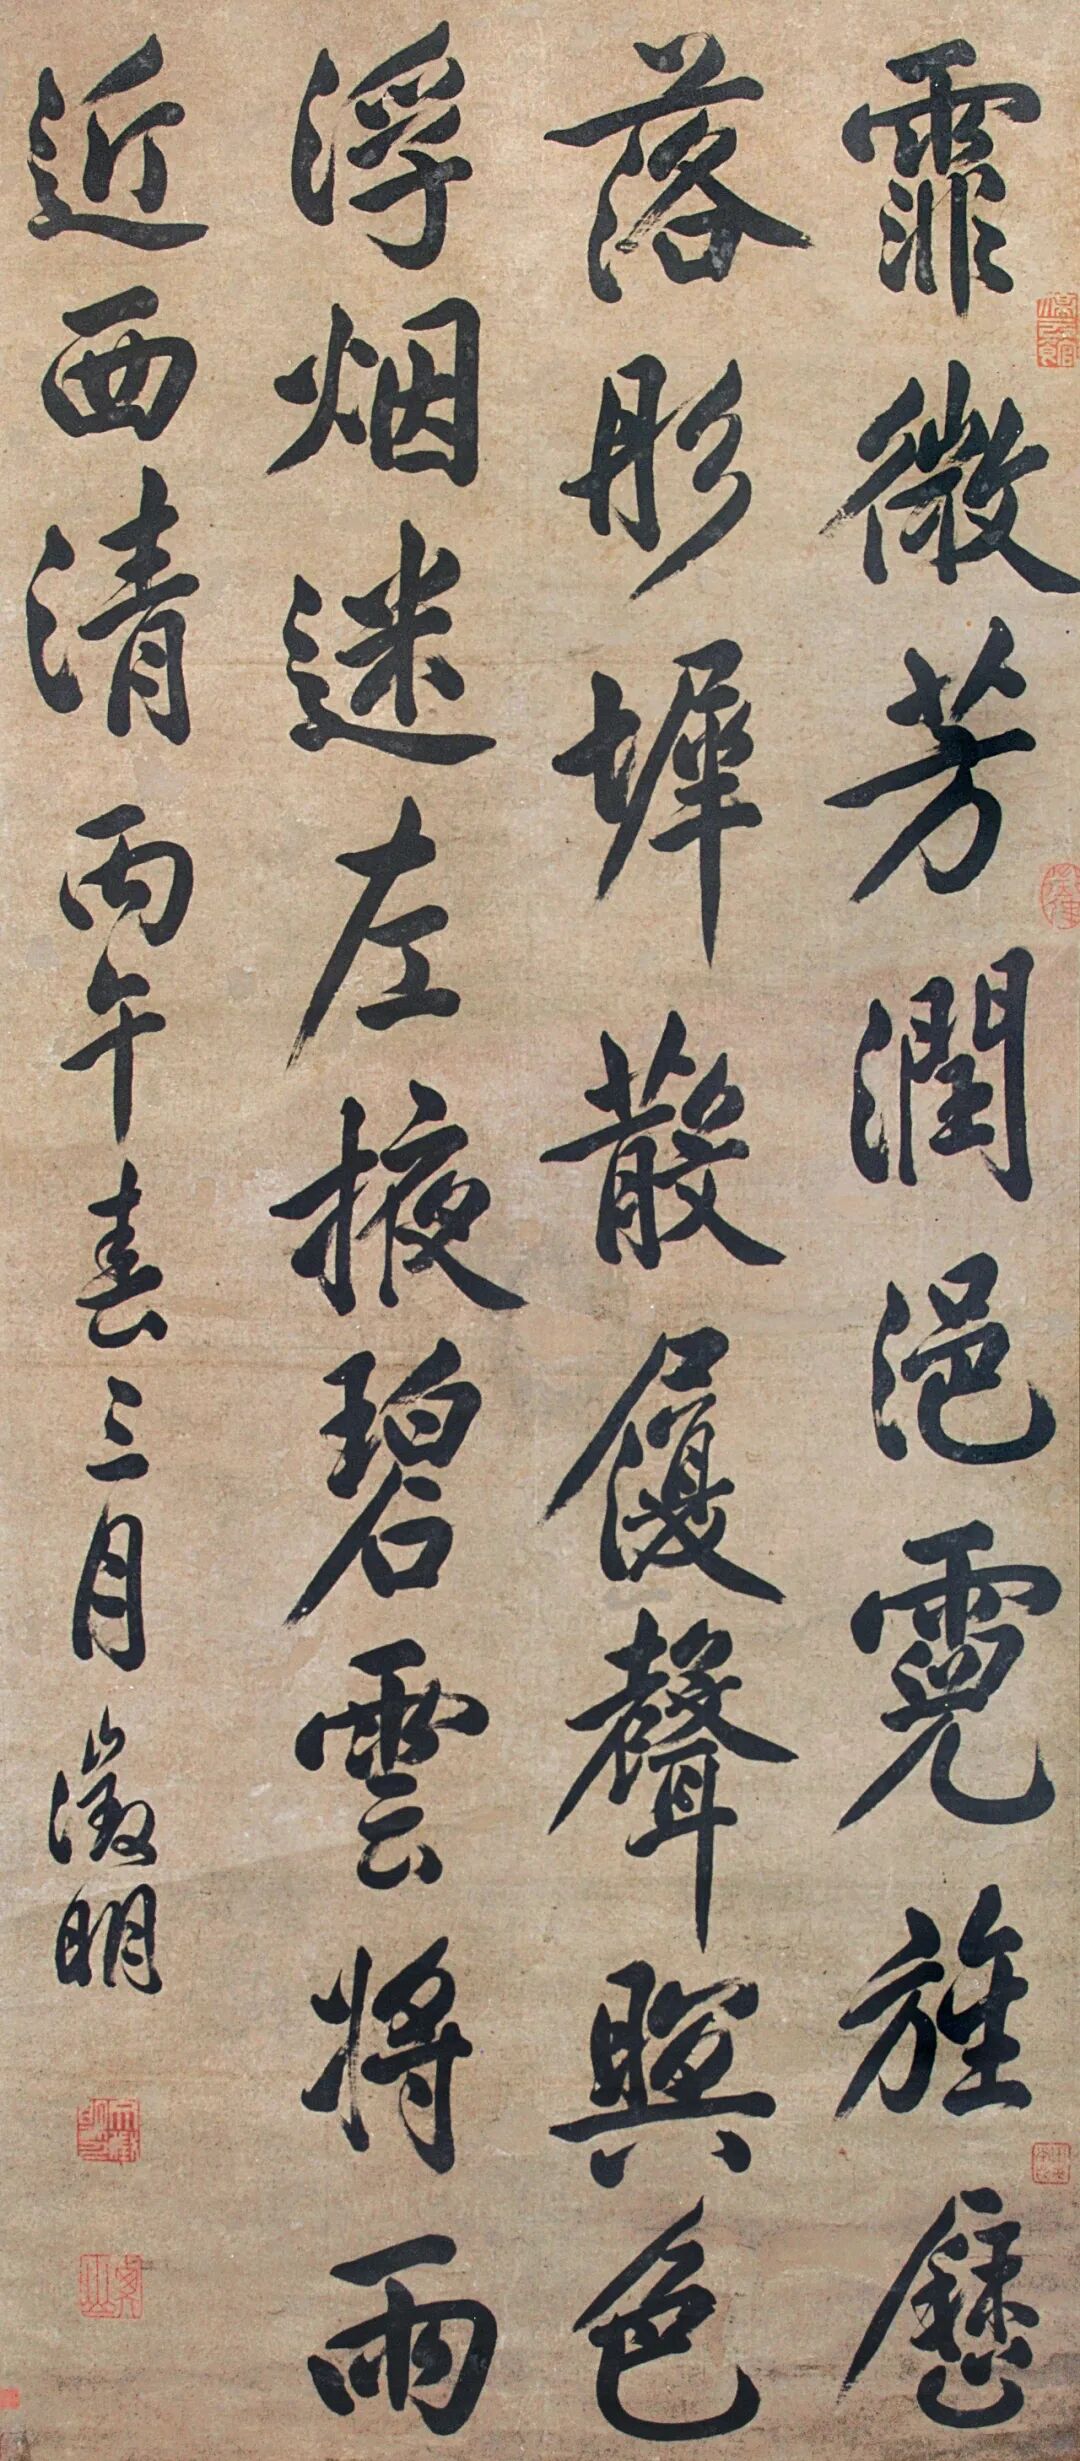 霏微芳潤浥霓旌歷
落彤墀散履聲照色
浮烟迷左掖碧雲将雨
近西清丙午春三月徵明